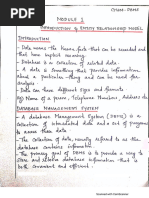 MODULE 1
INTRODUCTION & ENTITY RELATIONSHIP MODEL
INTRODUCTION
- Data means the known facts that can be recorded and
that have implicit meaning.
- Database is a collection of related data.
- A data is something that provides information
about a particular thing and can be used for
analysis.
- Data can have different size and forms
eg) Name of a person, Telephone Number, Address etc.
DATABASE MANAGEMENT SYSTEM
- A Database Management System (DBMS) is a
collection of interrelated data and a set of program
to access those data.
- The collection of data, usually referred to as the
database contains information.
- The primary goal of DBMS is to provide a way to
store and retrieve database information that is
both convenient and efficient.